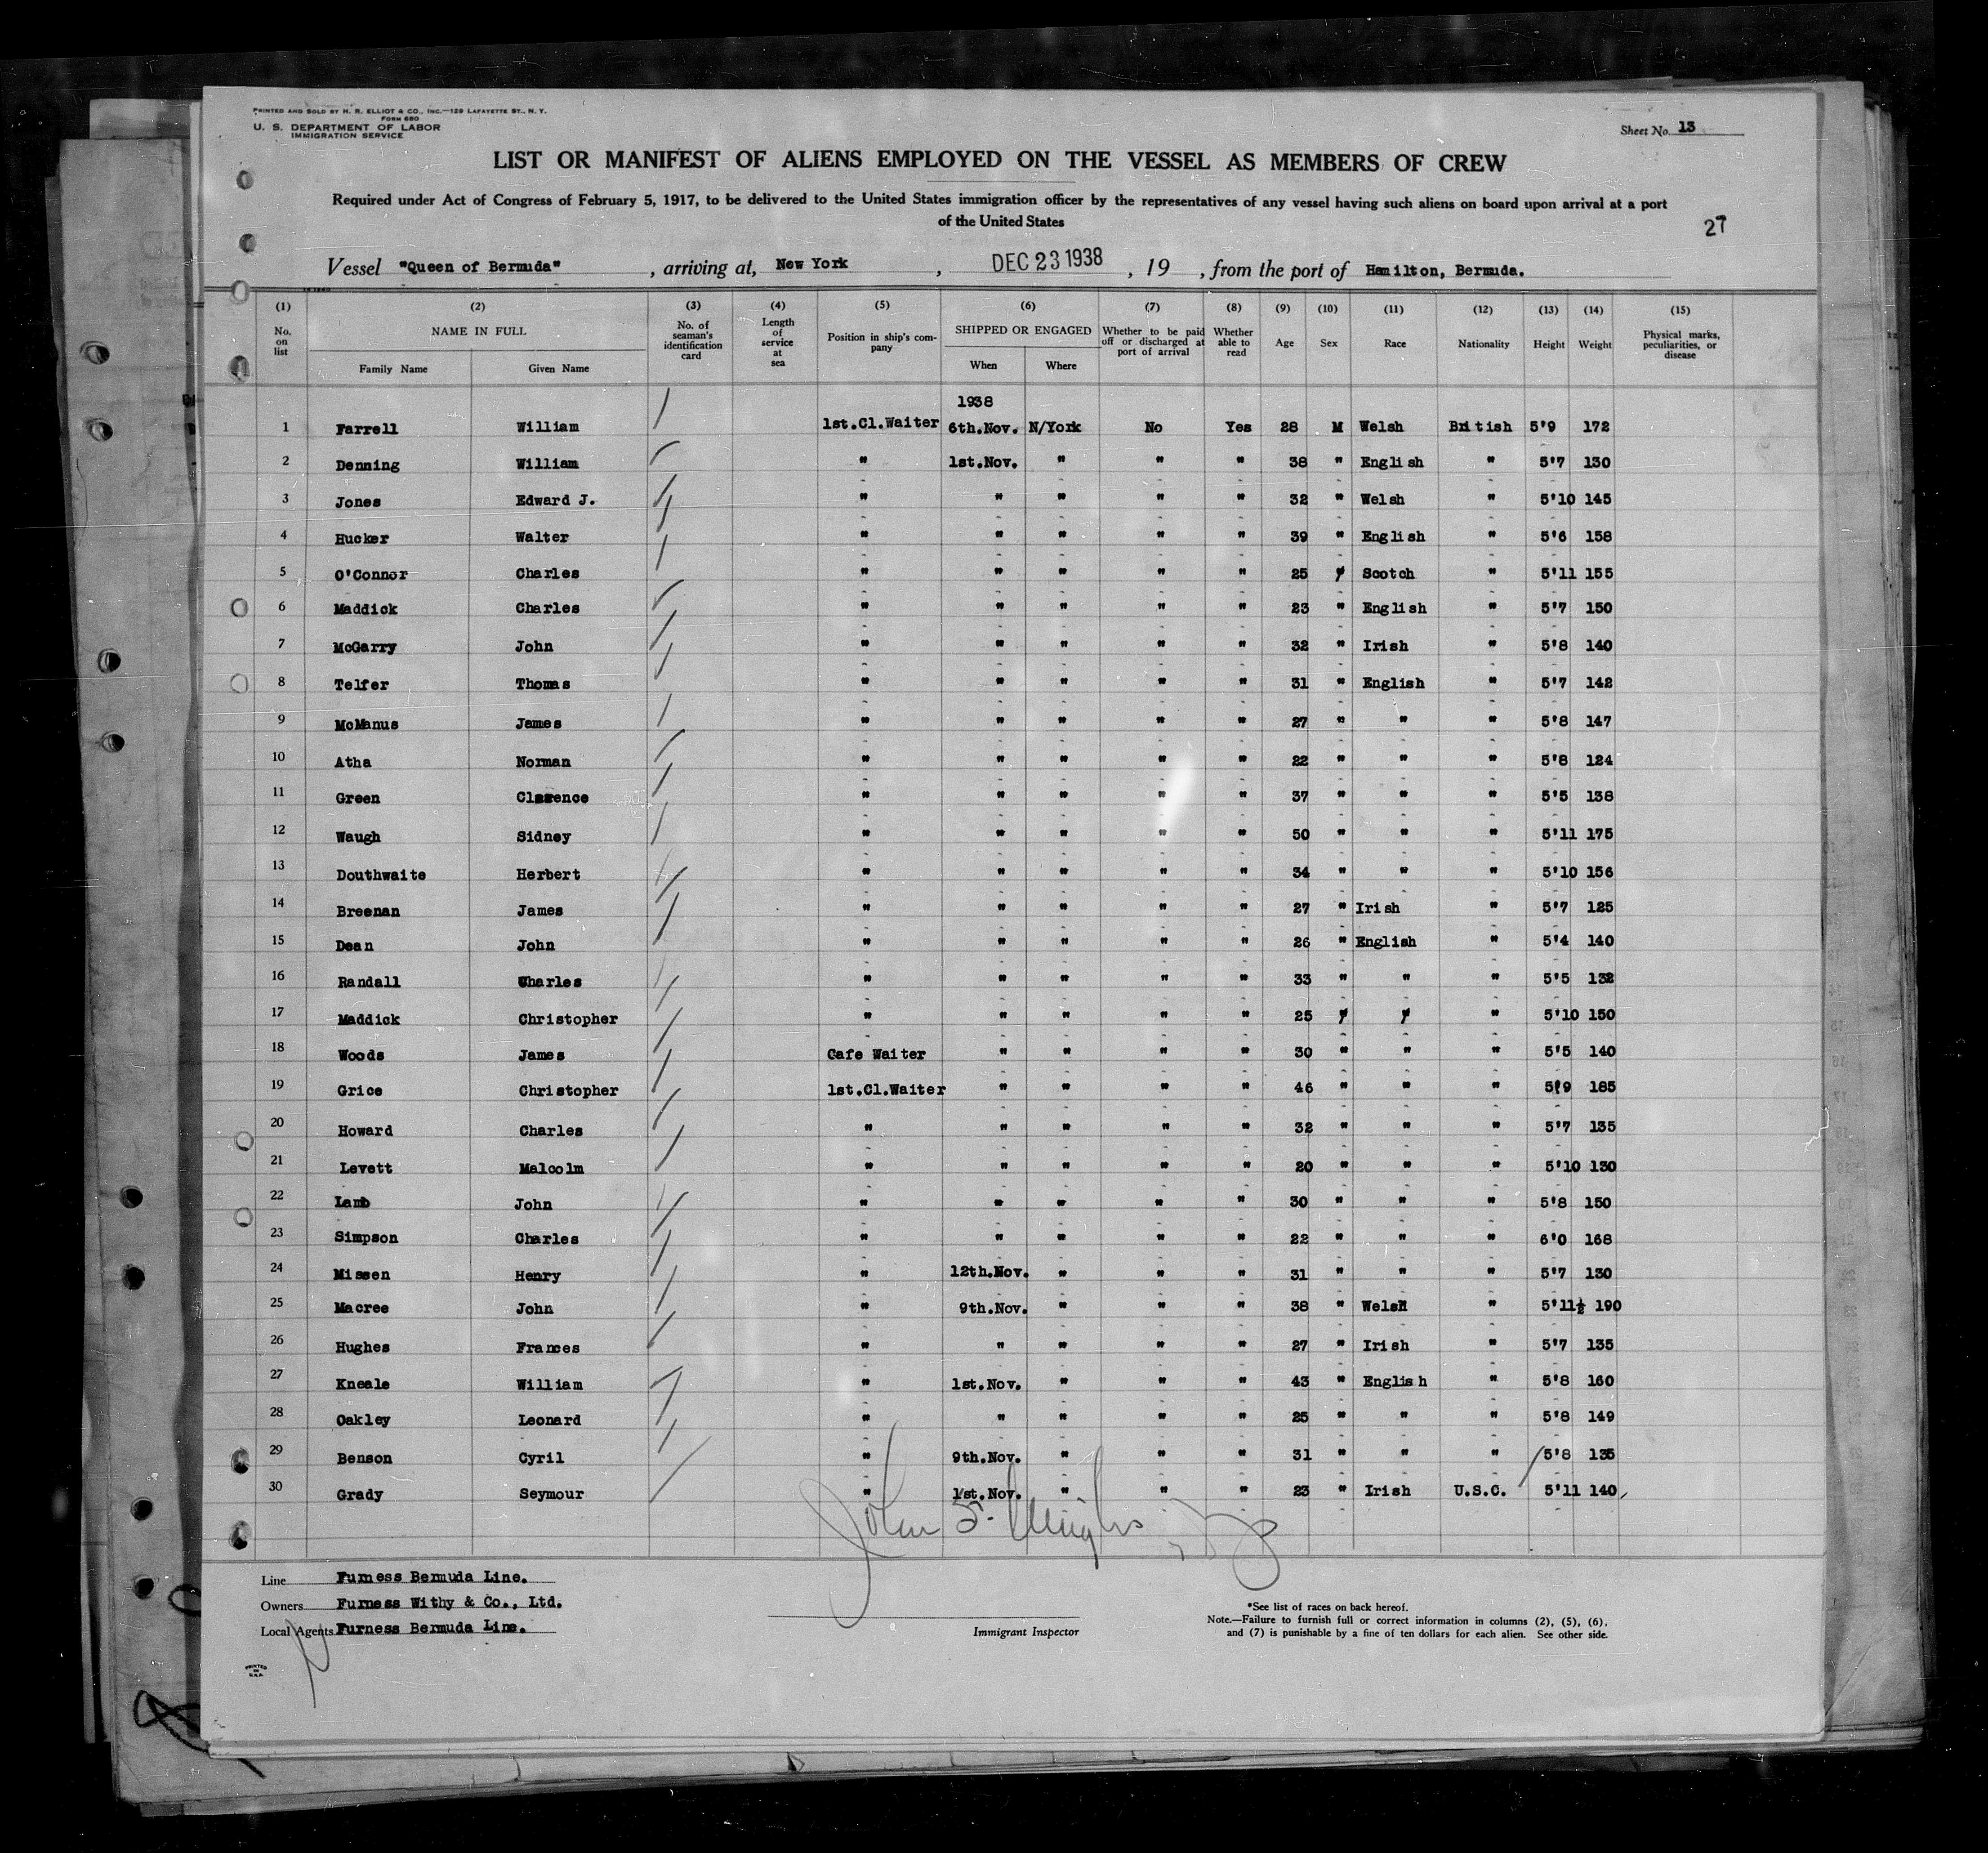 PRINTED AND SOLD BY H. R. ELLIOT & CO., INC.—129 LAFAYETTE ST., N. Y.
FORM 680
U. S. DEPARTMENT OF LABOR
IMMIGRATION SERVICE
Sheet No. 13
LIST OR MANIFEST OF ALIENS EMPLOYED ON THE VESSEL AS MEMBERS OF CREW
Required under Act of Congress of February 5, 1917, to be delivered to the United States immigration officer by the representatives of any vessel having such aliens on board upon arrival at a port
of the United States
27
Vessel "Queen of Bermuda", arriving at, New York, DEC 23 1938, 19 , from the port of Hamilton, Bermuda.
(1) (2) (3) (4) (5) (6) (7) (8) (9) (10) (11) (12) (13) (14) (15)
No. on list NAME IN FULL No. of seaman's identification card Length of service at sea Position in ship's company SHIPPED OR ENGAGED Whether to be paid off or discharged at port of arrival Whether able to read Age Sex Race Nationality Height Weight Physical marks, peculiarities, or disease
Family Name Given Name When Where
1938
1 Farrell William 1st.Cl.Waiter 6th.Nov. N/York No Yes 28 M Welsh British 5'9 172
2 Denning William " 1st.Nov. " " " 38 " English " 5'7 130
3 Jones Edward J. " " " " " 32 " Welsh " 5'10 145
4 Hucker Walter " " " " " 39 " English " 5'6 158
5 O'Connor Charles " " " " " 25 " Scotch " 5'11 155
6 Maddick Charles " " " " " 23 " English " 5'7 150
7 McGarry John " " " " " 32 " Irish " 5'8 140
8 Telfer Thomas " " " " " 31 " English " 5'7 142
9 McManus James " " " " " 27 " " " 5'8 147
10 Atha Norman " " " " " 22 " " " 5'8 124
11 Green Clarence " " " " " 37 " " " 5'5 138
12 Waugh Sidney " " " " " 50 " " " 5'11 175
13 Douthwaite Herbert " " " " " 34 " " " 5'10 156
14 Breenan James " " " " " 27 " Irish " 5'7 125
15 Dean John " " " " " 26 " English " 5'4 140
16 Randall Charles " " " " " 33 " " " 5'5 132
17 Maddick Christopher " " " " " 25 " " " 5'10 150
18 Woods James Cafe Waiter " " " " 30 " " " 5'5 140
19 Grice Christopher 1st.Cl.Waiter " " " " 46 " " " 5'9 185
20 Howard Charles " " " " " 32 " " " 5'7 135
21 Levett Malcolm " " " " " 20 " " " 5'10 130
22 Lamb John " " " " " 30 " " " 5'8 150
23 Simpson Charles " " " " " 22 " " " 6'0 168
24 Missen Henry " 12th.Nov. " " " 31 " " " 5'7 130
25 Macree John " 9th.Nov. " " " 38 " Welsh " 5'11½ 190
26 Hughes Frances " " " " " 27 " Irish " 5'7 135
27 Kneale William " 1st.Nov. " " " 43 " English " 5'8 160
28 Oakley Leonard " " " " " 25 " " " 5'8 149
29 Benson Cyril " 9th.Nov. " " " 31 " " " 5'8 135
30 Grady Seymour " 1st.Nov. " " " 23 " Irish U.S.C. 5'11 140
John
Line Furness Bermuda Line.
Owners Furness Withy & Co., Ltd.
Local Agents Furness Bermuda Line.
Immigrant Inspector
*See list of races on back hereof.
Note.—Failure to furnish full or correct information in columns (2), (5), (6),
and (7) is punishable by a fine of ten dollars for each alien. See other side.
PRINTED
IN
U.S.A.